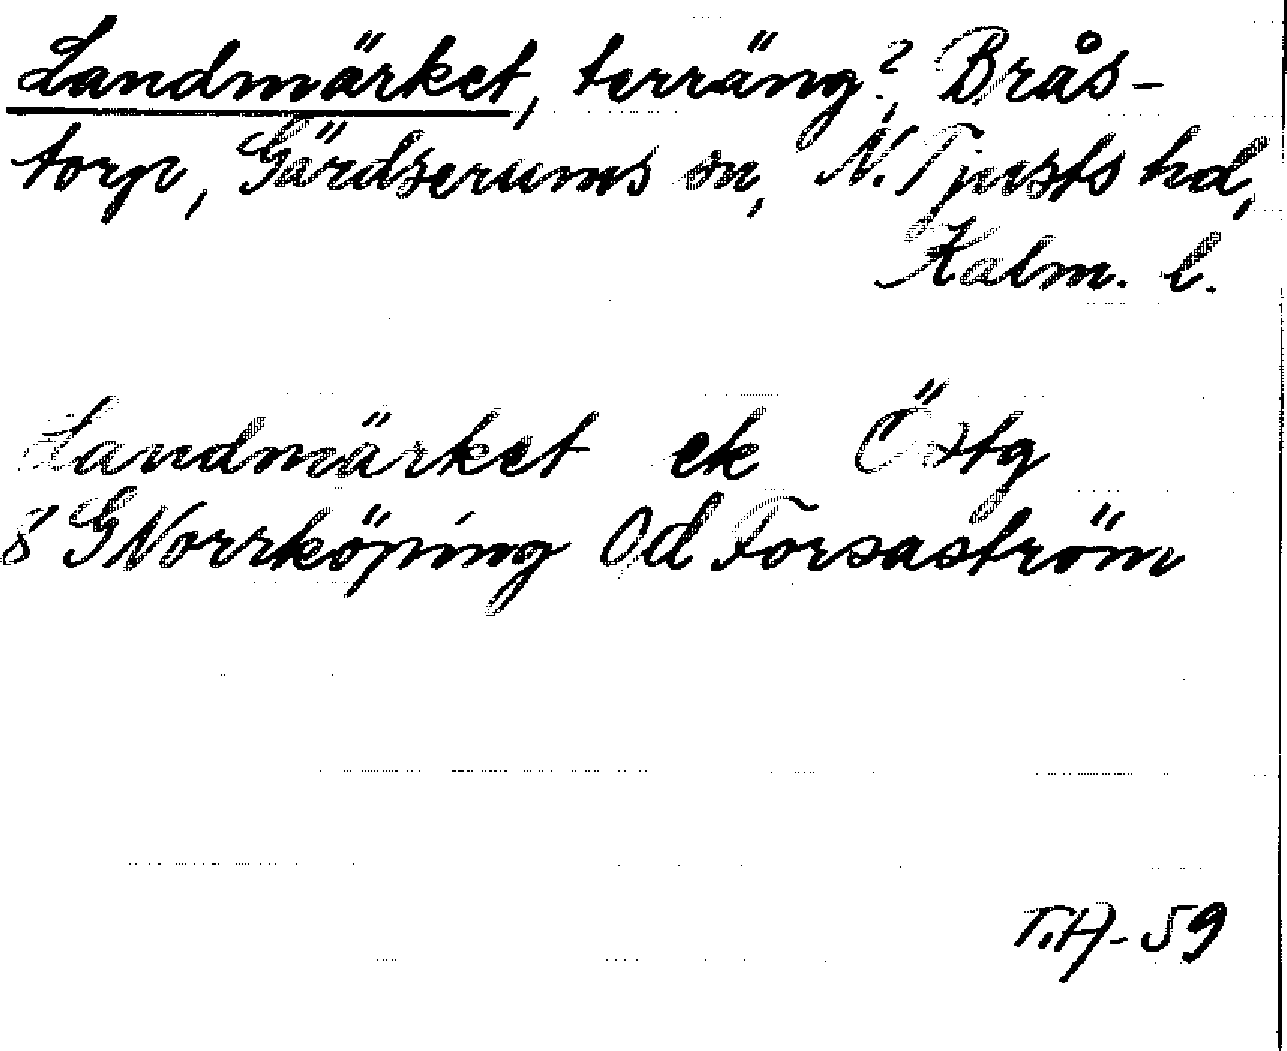 Landmärket, terräng?, Brås-
torp, Gärdserums sn, N. Tjusts hd,
Kalm. l.
Landmärket ek Östg
8 G Norrköping Od Forsaström
T.H-59